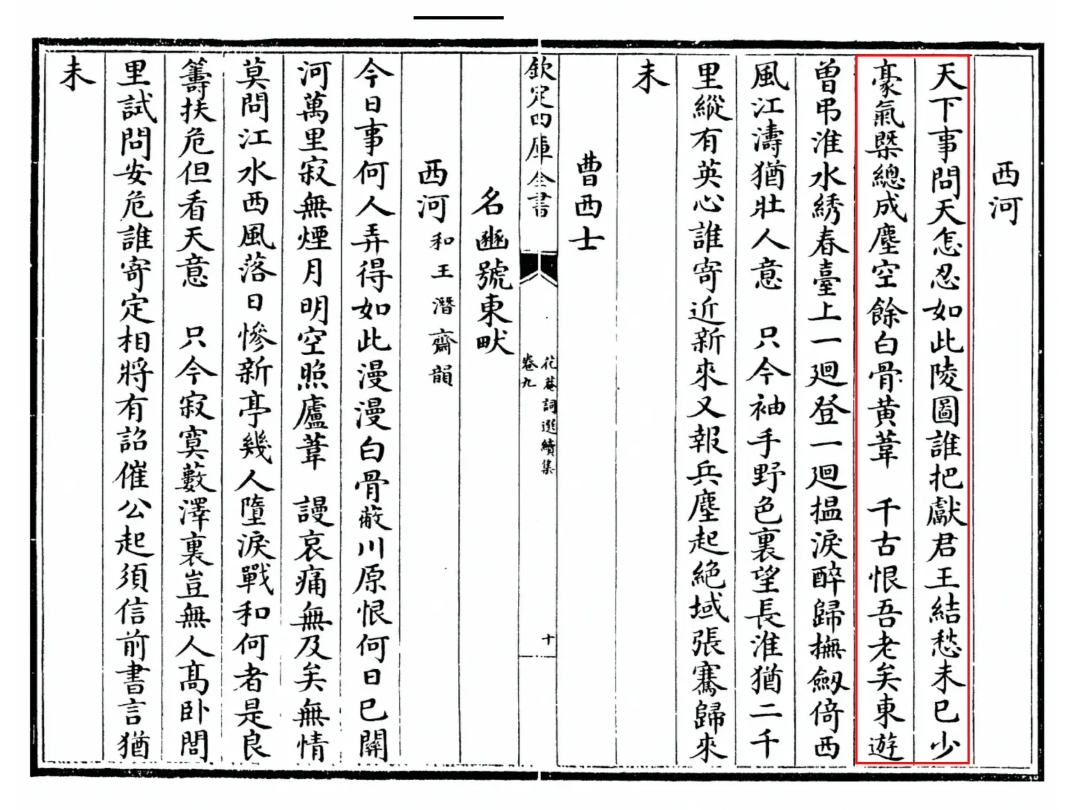 西河
天下事問天怎忍如此陵圖誰把獻君王結愁未已少
豪氣槩總成塵空餘白骨黄葦　千古恨吾老矣東遊
曽弔淮水綉春臺上一廻登一廻揾淚醉歸撫劔倚西
風江濤猶壯人意　只今袖手野色裏望長淮猶二千
里縱有英心誰寄近新來又報兵塵起絶域張騫歸來
未
曹西士
欽定四庫全書
花菴詞選續集
卷九
十
名豳號東畎
西河 和王潛齋韻
今日事何人弄得如此漫漫白骨蔽川原恨何日已關
河萬里寂無煙月明空照廬葦　謾哀痛無及矣無情
莫問江水西風落日慘新亭幾人墮淚戰和何者是良
籌扶危但看天意　只今寂寞藪澤裏豈無人髙卧閭
里試問安危誰寄定相將有詔催公起須信前書言猶
未